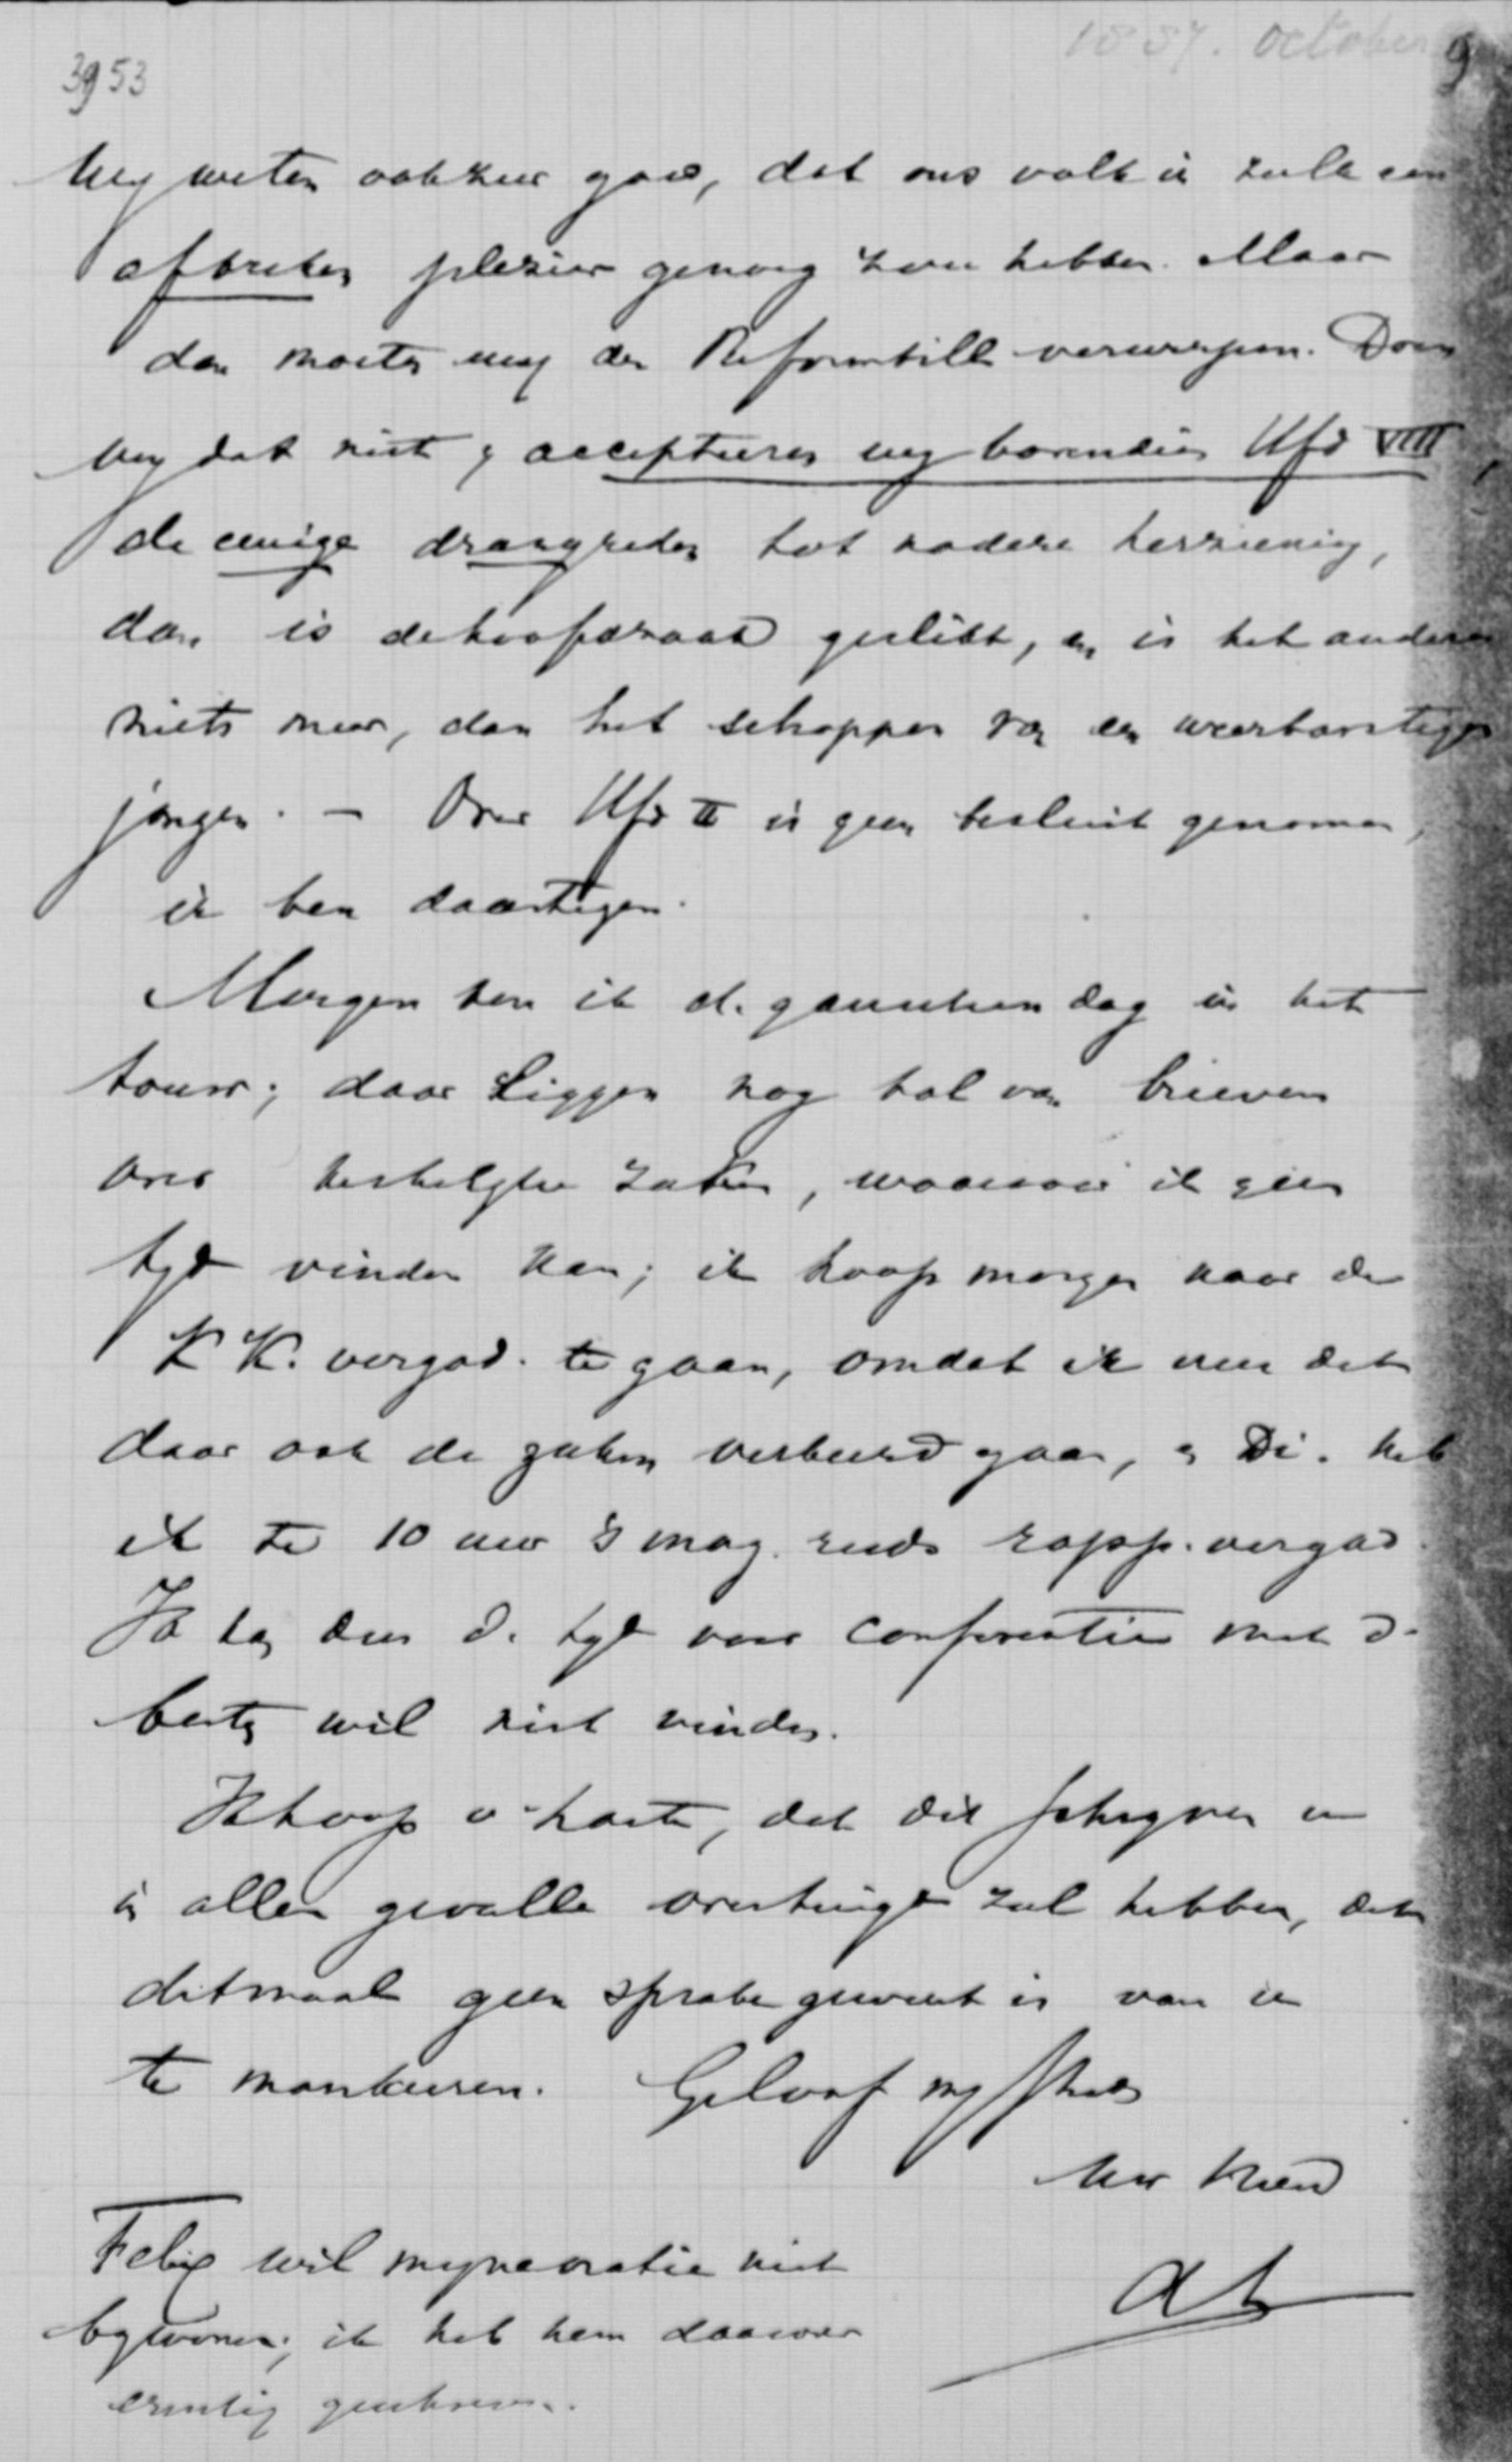 1887. October
9
3953
Wij weten ook zeer goed, dat ons volk in zulk een
aftreken plezier genoeg zou hebben. Maar
dan moeten wij den Reformbill verwerpen. Doen
wij dat niet, accepteeren wij bovendien Hfd VIII,
de eenige drangreden tot nadere herziening,
dan is de hoofdzaak geslikt, en is het andere
niets meer, dan het schoppen van een weerbarstigen
jongen. – Over Hfd II is geen besluit genomen,
ik ben daartegen.
Morgen ben ik de ganschen dag in het
touw; daar liggen nog tal van brieven
over kerkelijke zaken, waarvoor ik geen
tijd vinden kan; ik hoop morgen naar de
K K. vergad. te gaan, omdat ik vrees dat
daar ook de zaken verkeerd gaan, en Di. heb
ik te 10 uur 's morg. reeds rapp. vergad.
Ik kan dus de tijd voor conferentie met de
besten wil niet vinden.
Ik hoop v. harte, dat dit schrijven u
in allen gevalle overtuigd zal hebben, dat
ditmaal geen sprake geweest is van u
te mankeeren. Geloof mij steeds
Uw vriend
Felix wil mijne oratie niet
bijwonen; ik heb hem daarover
ernstig geschreven.